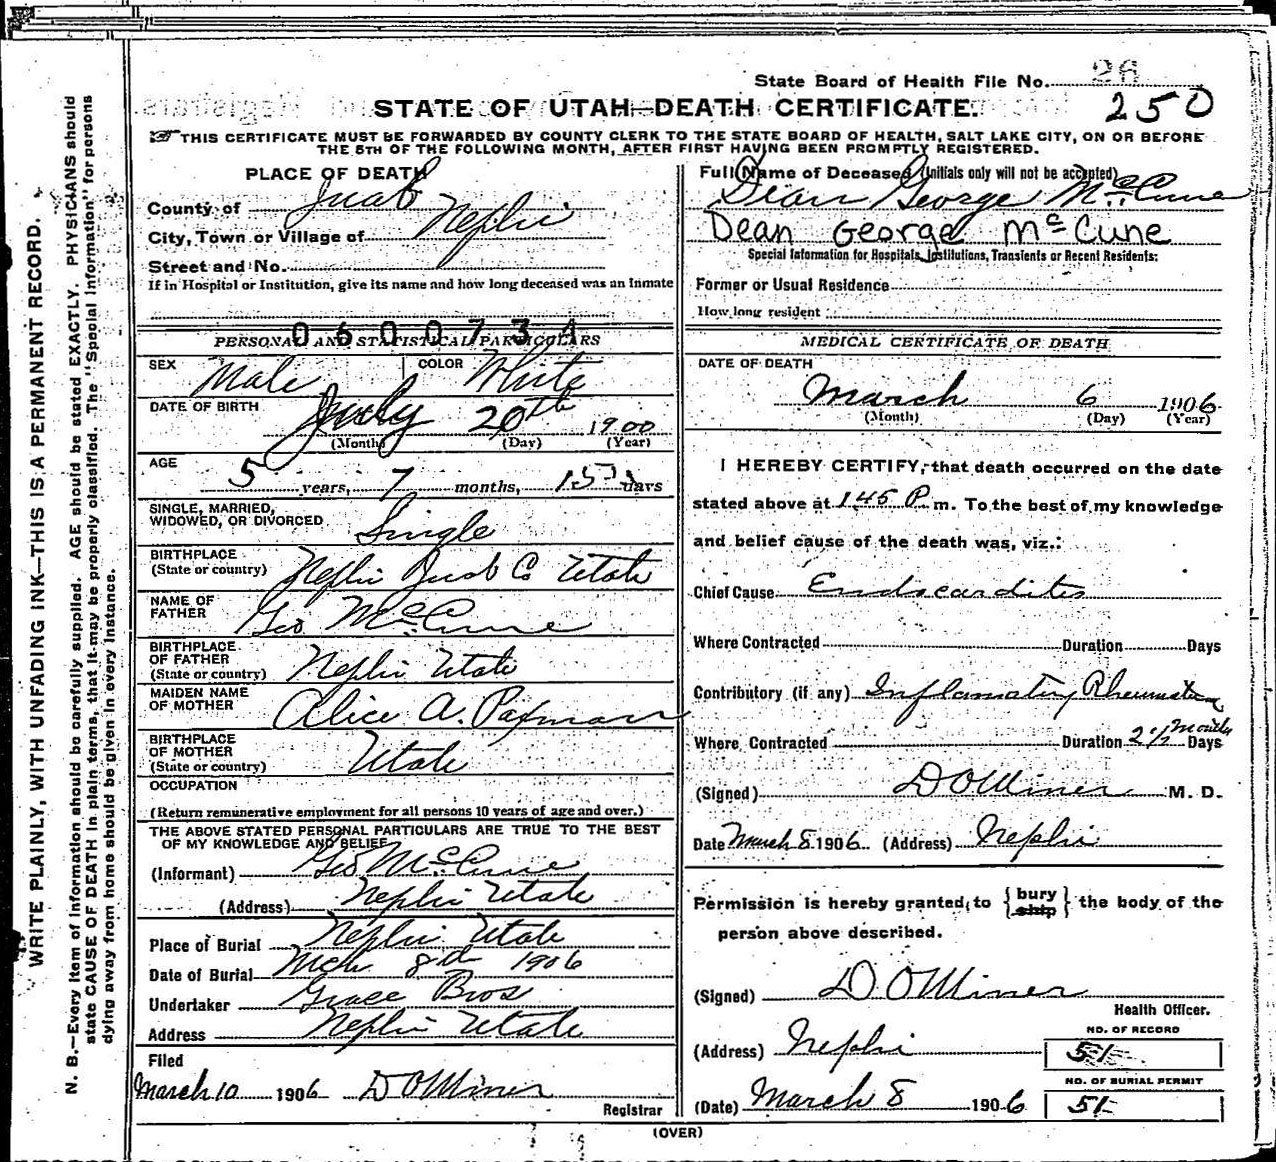 State Board of Health File No. 26
250
STATE OF UTAH—DEATH CERTIFICATE.
THIS CERTIFICATE MUST BE FORWARDED BY COUNTY CLERK TO THE STATE BOARD OF HEALTH, SALT LAKE CITY, ON OR BEFORE
THE 5TH OF THE FOLLOWING MONTH, AFTER FIRST HAVING BEEN PROMPTLY REGISTERED.
WRITE PLAINLY, WITH UNFADING INK—THIS IS A PERMANENT RECORD.
N. B.—Every item of Information should be carefully supplied. AGE should be stated EXACTLY. PHYSICIANS should
state CAUSE OF DEATH in plain terms, that it may be properly classified. The "Special Information" for persons
dying away from home should be given in every instance.
PLACE OF DEATH
County of Juab
City, Town or Village of Nephi
Street and No.
If in Hospital or Institution, give its name and how long deceased was an Inmate
0600734
PERSONAL AND STATISTICAL PARTICULARS
SEX Male COLOR White
DATE OF BIRTH July 20th 1900
(Month) (Day) (Year)
AGE
5 years, 7 months, 15 days
SINGLE, MARRIED,
WIDOWED, OR DIVORCED Single
BIRTHPLACE
(State or country) Nephi Juab Co Utah
NAME OF
FATHER Geo McCune
BIRTHPLACE
OF FATHER
(State or country) Nephi Utah
MAIDEN NAME
OF MOTHER Alice A. Paxman
BIRTHPLACE
OF MOTHER
(State or country) Utah
OCCUPATION
(Return remunerative employment for all persons 10 years of age and over.)
THE ABOVE STATED PERSONAL PARTICULARS ARE TRUE TO THE BEST
OF MY KNOWLEDGE AND BELIEF
(Informant) Geo McCune
(Address) Nephi Utah
Place of Burial Nephi Utah
Date of Burial Mch 8th 1906
Undertaker Grace Bros
Address Nephi Utah
Filed
March 10 1906 D O Miner
Registrar
Full Name of Deceased (Initials only will not be accepted)
Dean George McCune
Dean George McCune
Special Information for Hospitals, Institutions, Transients or Recent Residents:
Former or Usual Residence
How long resident
MEDICAL CERTIFICATE OF DEATH
DATE OF DEATH
March 6 1906
(Month) (Day) (Year)
I HEREBY CERTIFY, that death occurred on the date
stated above at 145 P. m. To the best of my knowledge
and belief cause of the death was, viz.:
Chief Cause Endocarditis
Where Contracted Duration Days
Contributory (if any) Inflamatory Rheumatism
Where Contracted Duration 2½ Months Days
(Signed) D O Miner M. D.
Date March 8 1906 (Address) Nephi
Permission is hereby granted to { bury ship } the body of the
person above described.
(Signed) D. O Miner
Health Officer.
NO. OF RECORD
(Address) Nephi 51
NO. OF BURIAL PERMIT
(Date) March 8 1906 51
(OVER)